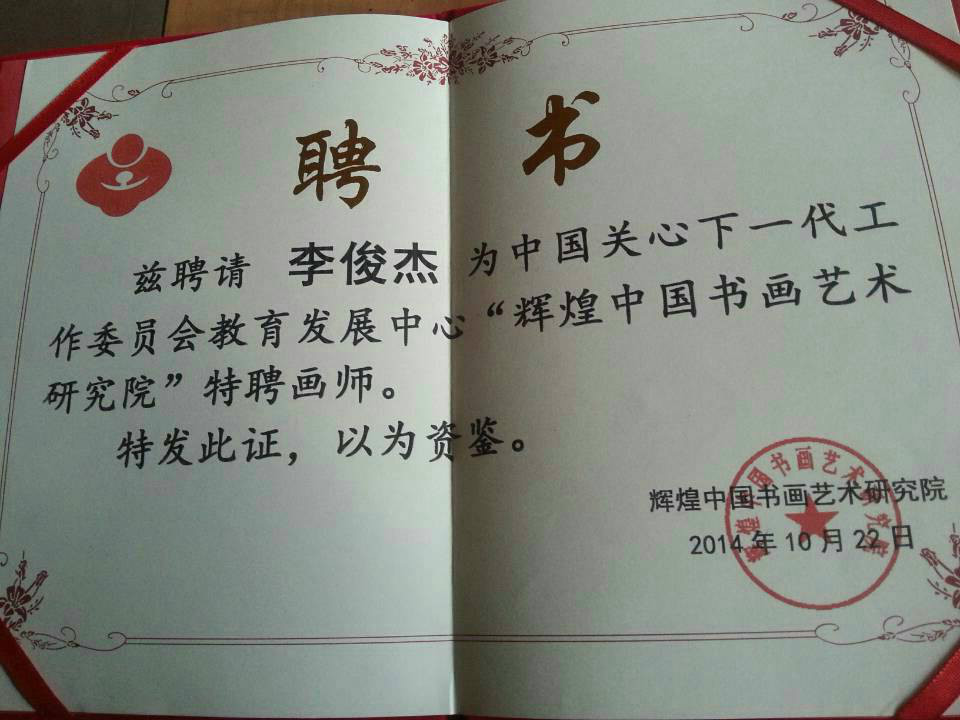 聘书
兹聘请 李俊杰 为中国关心下一代工
作委员会教育发展中心“辉煌中国书画艺术
研究院”特聘画师。
特发此证，以为资鉴。
辉煌中国书画艺术研究院
2014年10月22日
辉煌中国书画艺术研究院